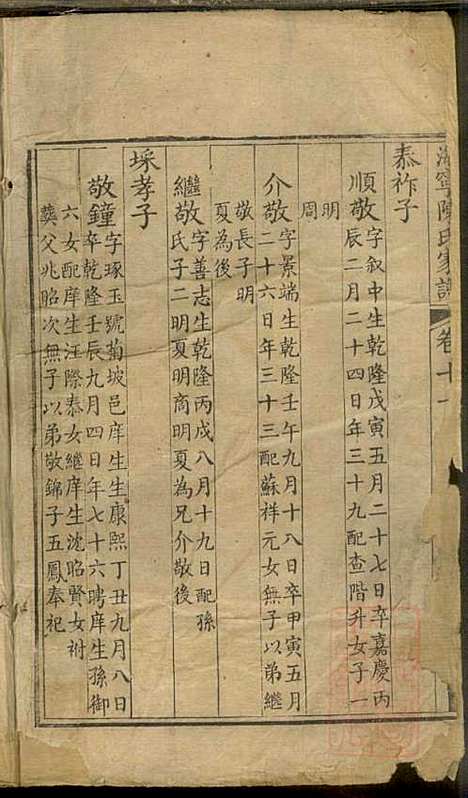 海寧陳氏家譜 卷十一
泰祚子
順敬 字叙中生乾隆戊寅五月二十七日卒嘉慶丙
辰二月二十四日年三十九配查階升女子一
明
周
介敬 字景端生乾隆壬午九月十八日卒甲寅五月
二十六日年三十三配蘇祥元女無子以弟繼
敬長子明
夏為後
繼敬 字善志生乾隆丙戌八月十九日配孫
氏子二明夏明商明夏為兄介敬後
埰孝子
敬鐘 字琢玉號菊坡邑庠生生康熙丁丑九月八日
卒乾隆壬辰九月四日年七十六聘庠生孫御
六女配庠生汪際泰女繼庠生沈昭賢女祔
父兆昭次無子以弟敬錦子五鳳奉祀